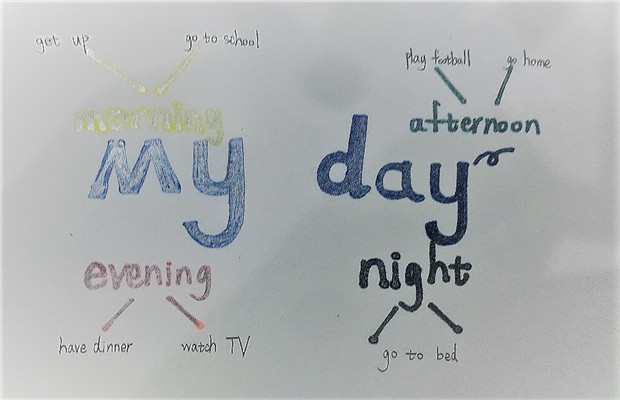 get up
go to school
morning
play football
go home
afternoon
my day
evening
have dinner
watch TV
night
go to bed